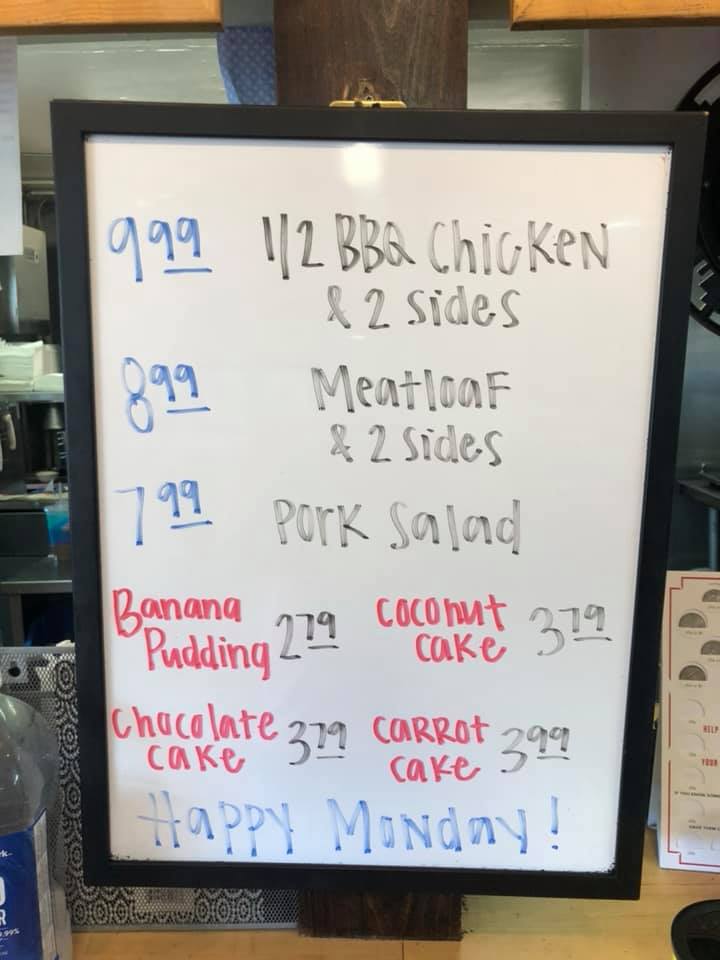 9 99 1/2 BBQ Chicken
& 2 sides
8 99 Meatloaf
& 2 sides
7 99 Pork Salad
Banana
Pudding 2 79
Coconut
Cake 3 79
Chocolate
Cake 3 79
Carrot
Cake 3 99
Happy Monday!
HELP
YOUR